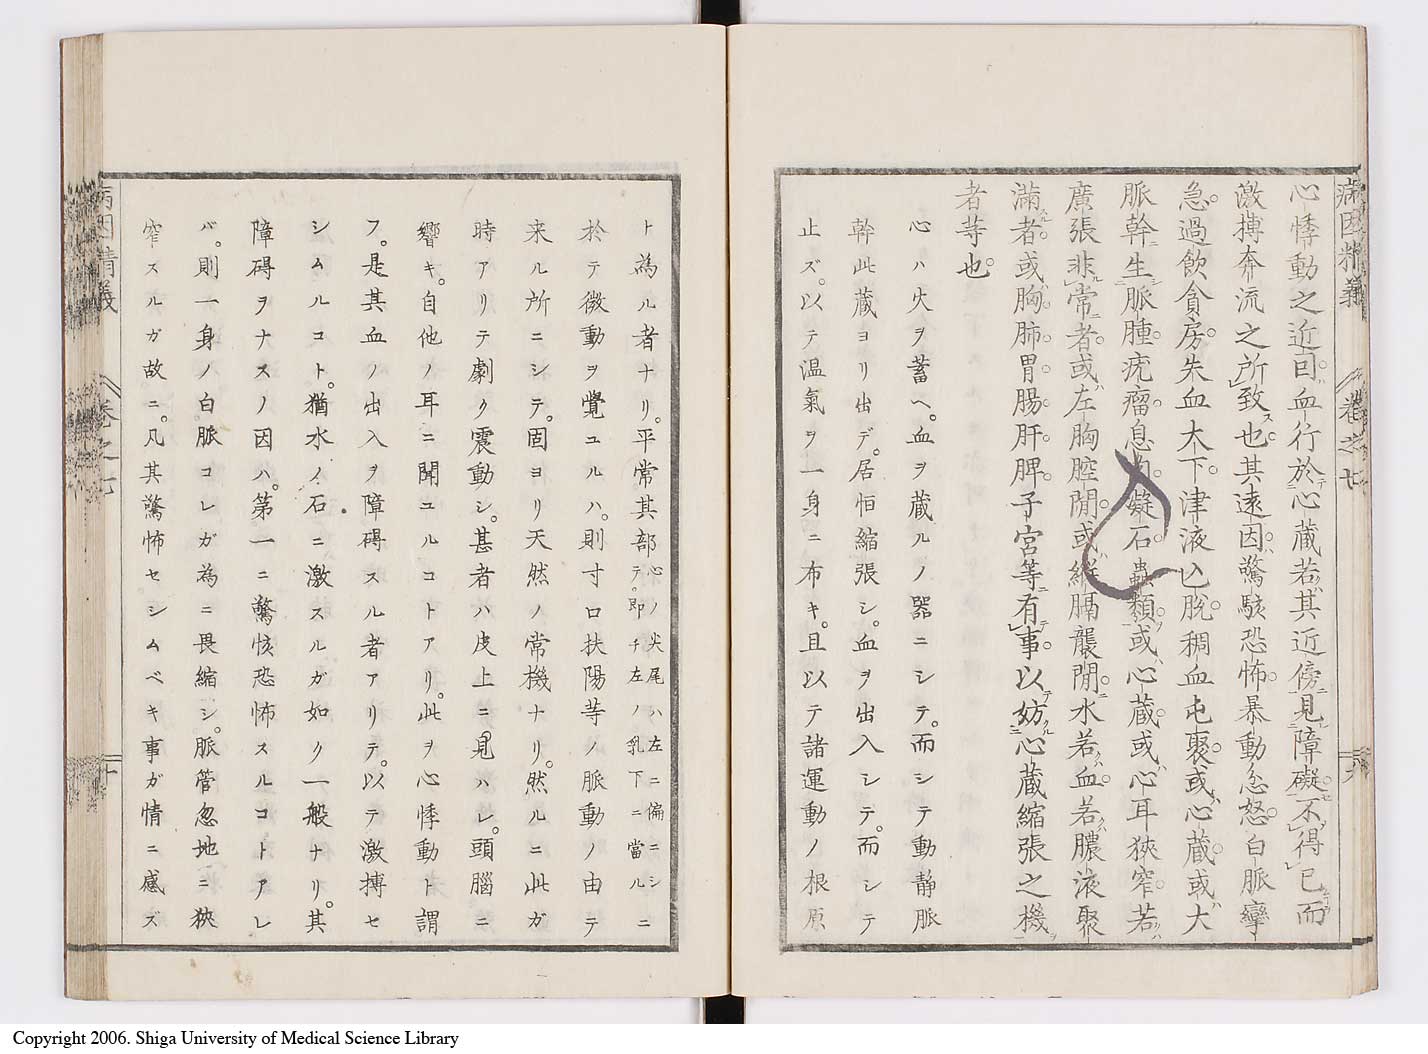 病因精義 卷之七 九
心悸動之近因血行於心蔵若其近傍見障礙不得已而
激搏奔流之所致也其遠因驚駭恐怖暴動忿怒白脈攣
急過飲貪房失血大下津液亾脫稠血屯褁或心蔵或大
脈幹生脈腫疣瘤息肉凝石蟲類或心蔵或心耳狹窄若
廣張非常者或左胸腔閒或縱膈襲閒水若血若膿液聚
滿者或胸肺胃腸肝脾子宮等有事以妨心蔵縮張之機
者等也
心ハ火ヲ蓄ヘ。血ヲ蔵ルノ器ニシテ。而シテ動靜脈
幹此蔵ヨリ出デ。居恒縮張シ。血ヲ出入シテ。而シテ
止ズ。以テ温氣ヲ一身ニ布キ。且以テ諸運動ノ根原
ト為ル者ナリ。平常其部心ノ尖尾ハ左ニ偏ニシテ。即チ左ノ乳下ニ當ルニ
於テ微動ヲ覺ユルハ。則寸口扶陽等ノ脈動ノ由テ
来ル所ニシテ。固ヨリ天然ノ常機ナリ。然ルニ此ガ
時アリテ劇ク震動シ。甚者ハ皮上ニ見ハレ。頭腦ニ
響キ。自他ノ耳ニ聞ユルコトアリ。此ヲ心悸動ト謂
フ。是其血ノ出入ヲ障碍スル者アリテ。以テ激搏セ
シムルコト。猶水ノ石ニ激スルガ如ク一般ナリ。其
障碍ヲナスノ因ハ。第一ニ驚恢恐怖スルコトアレ
バ。則一身ノ白脈コレガ為ニ畏縮シ。脈管忽地ニ狹
窄スルガ故ニ。凡其驚怖セシムベキ事ガ情ニ感ズ
病因精義 卷之七 十
Copyright 2006. Shiga University of Medical Science Library